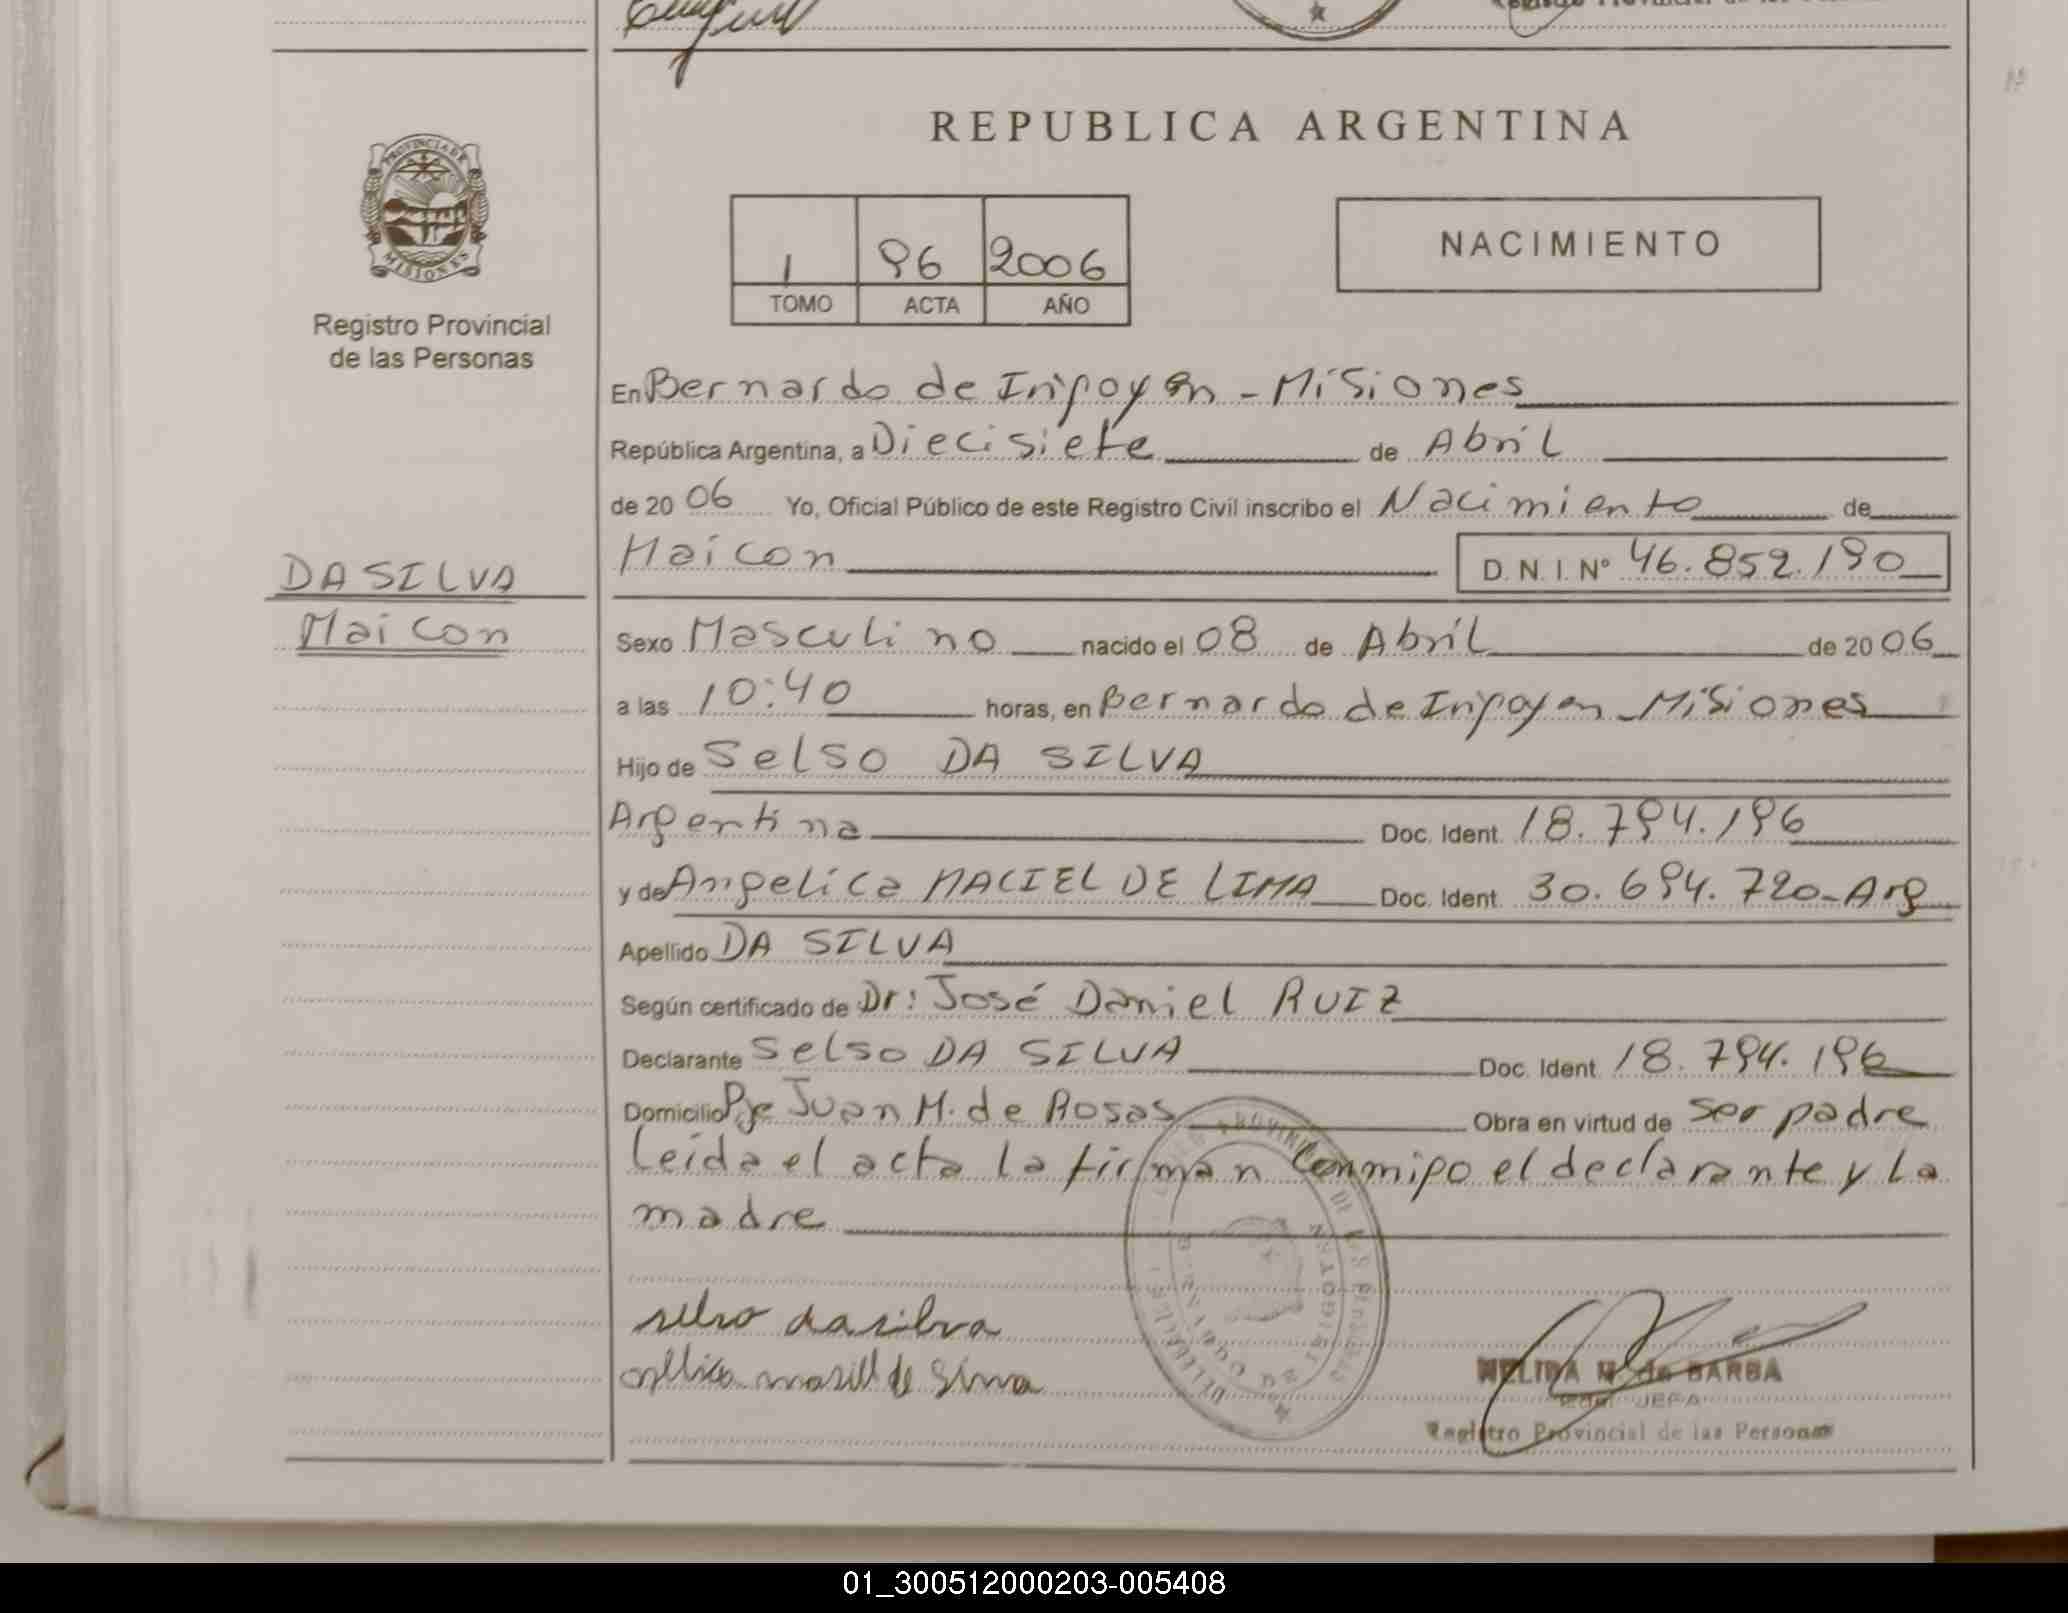 REPUBLICA ARGENTINA
PROVINCIA DE
MISIONES
Registro Provincial
de las Personas
1 96 2006
TOMO ACTA AÑO
NACIMIENTO
En Bernardo de Irigoyen - Misiones
República Argentina, a Diecisiete de Abril
de 2006 Yo, Oficial Público de este Registro Civil inscribo el Nacimiento de
Maicon D. N. I. Nº 46.852.190
DA SILVA
Maicon
Sexo Masculino nacido el 08 de Abril de 2006
a las 10:40 horas, en Bernardo de Irigoyen - Misiones
Hijo de Selso DA SILVA
Argentina Doc. Ident. 18.794.196
y de Angelica MACIEL DE LIMA Doc. Ident. 30.694.720 - Arg
Apellido DA SILVA
Según certificado de Dr: José Daniel RUIZ
Declarante Selso DA SILVA Doc. Ident. 18.794.196
Domicilio Pje Juan M. de Rosas Obra en virtud de ser padre
Leida el acta la firman conmigo el declarante y la
madre
selso da silva
NELIDA N. de BARBA
JEFA
Registro Provincial de las Personas
01_300512000203-005408